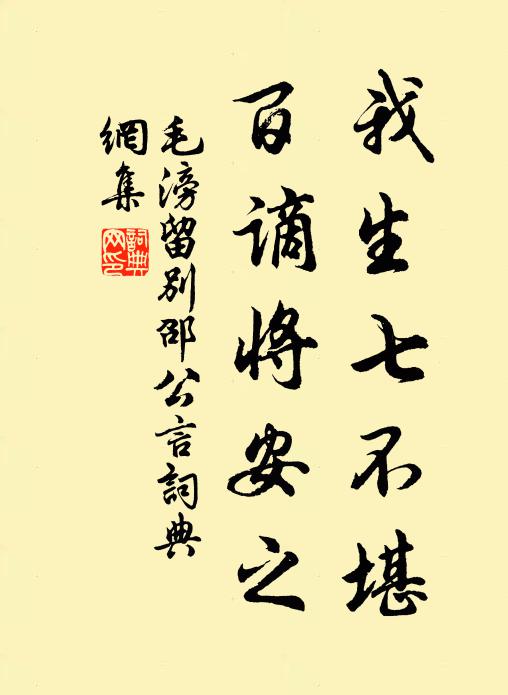 我生七不堪
百谪将安之
毛滂留别邵公言詞典
網集
詞典
网印